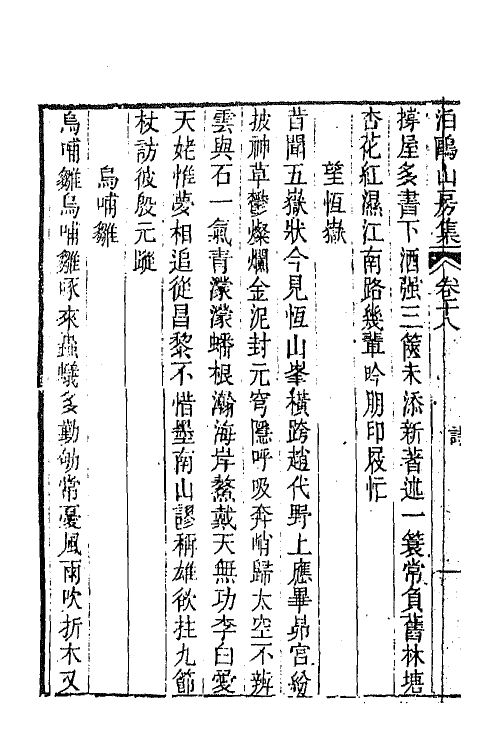 泊鷗山房集 卷十八 詩 一
撐屋多書下酒强三篋未添新著述一簑常負舊林塘
杏花紅濕江南路幾輩吟朋印屐忙
望恆嶽
昔聞五嶽狀今見恆山峯橫跨趙代野上應畢昴宫紛
披神草鬱燦爛金泥封元穹隱呼吸奔峭歸太空不辨
雲與石一氣青濛濛蟠根瀚海岸鰲戴天無功李白愛
天姥惟夢相追從昌黎不惜墨南山謬稱雄欲拄九節
杖訪彼殷元蹤
烏哺雛
烏哺雛烏哺雛啄來蟲蟻多勤劬常憂風雨吹折木又